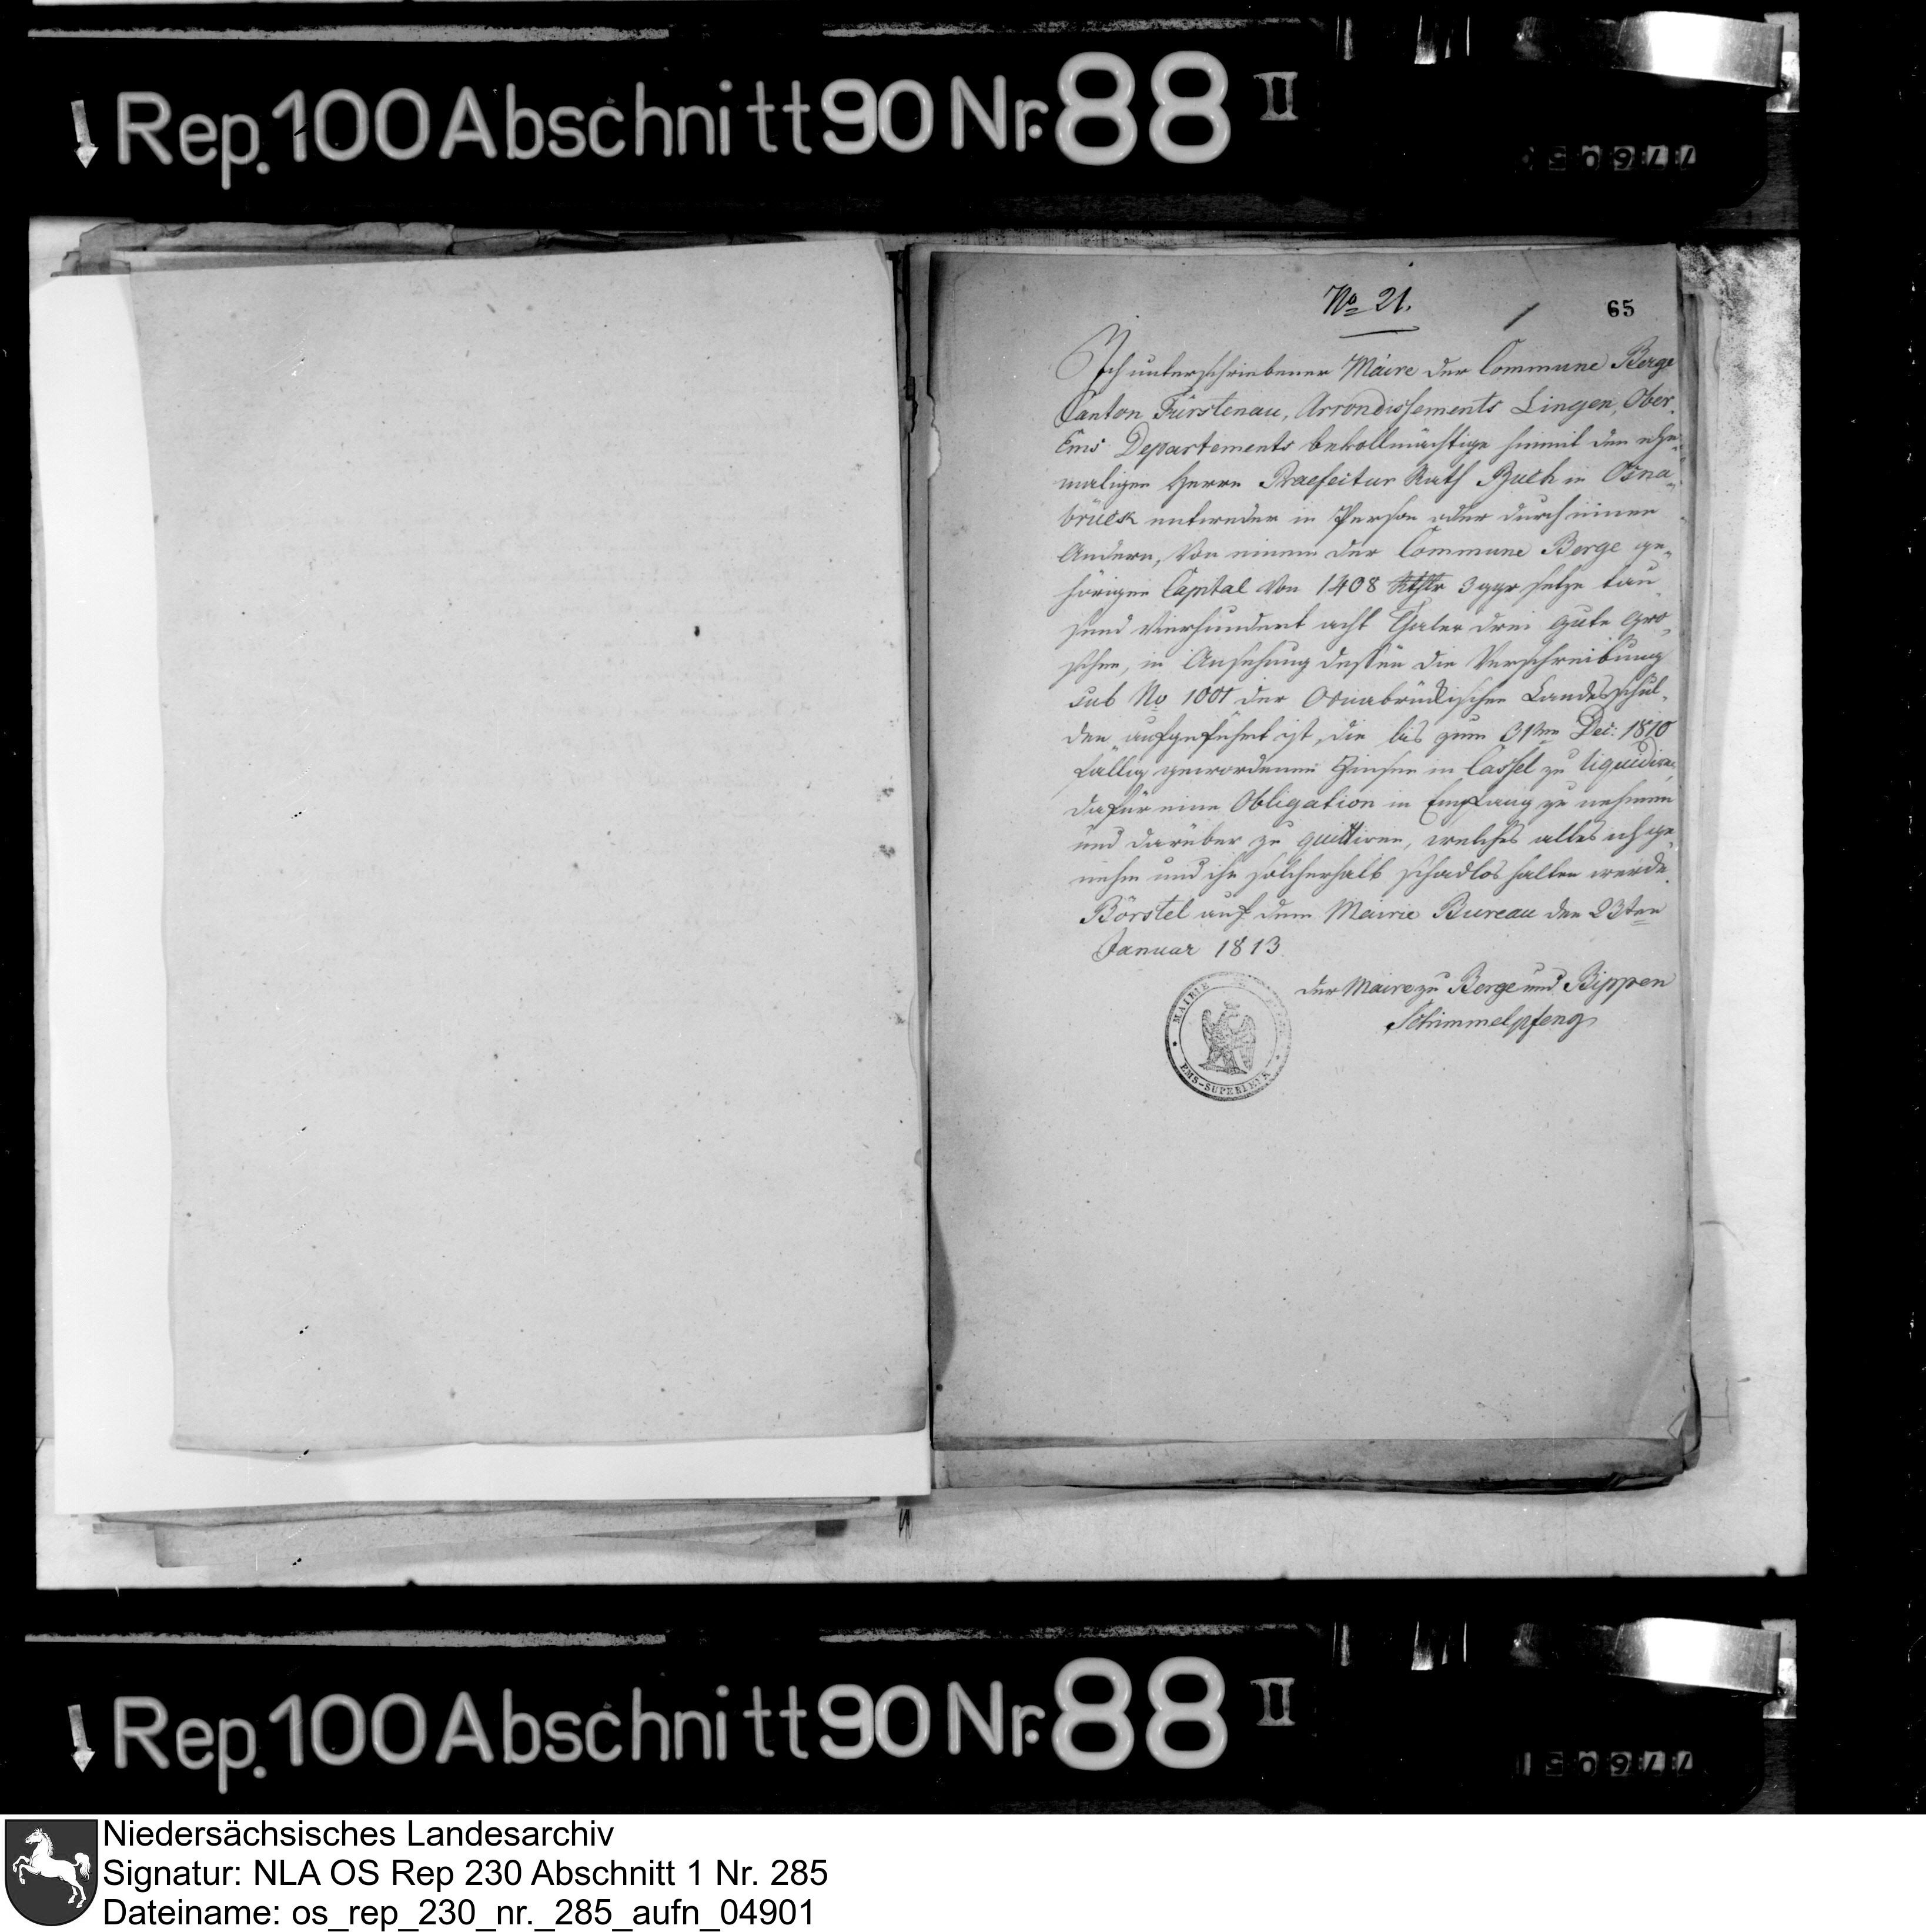 Rep. 100 Abschnitt 90 Nr. 88 II
77605
No 21.
65
Ich unterschriebener Maire der Commune Berge
Canton Fürstenau, Arrondissements Lingen, Ober-
Ems Departements bevollmächtige hiemit den ehe-
maligen Herrn Praefectur Rath Buch in Osna-
brück entweder in Person oder durch einen
Andern, von einem der Commune Berge ge-
hörigen Capital von 1408 Rthlr 3 ggr sage tau-
send vierhundert acht Thaler drei gute Gro-
schen, in Ansehung dessen die Verschreibung
sub No 1001 der Osnabrückischen Landesschul-
den aufgeführt ist, die bis zum 31ten Dec: 1810
fällig gewordenen Zinsen in Cassel zu liquidiren
dafür eine Obligation in Empfang zu nehmen
und darüber zu quittiren, welches alles ich ge-
nehm und ihn solcherhalb schadlos halten werde.
Börstel auf dem Mairie Bureau den 23ten
Januar 1813.
der Maire zu Berge und Bippen
Schimmelpfeng
MAIRIE
EMS-SUPERIEUR
Rep. 100 Abschnitt 90 Nr. 88 II
776051
Niedersächsisches Landesarchiv
Signatur: NLA OS Rep 230 Abschnitt 1 Nr. 285
Dateiname: os_rep_230_nr._285_aufn_04901